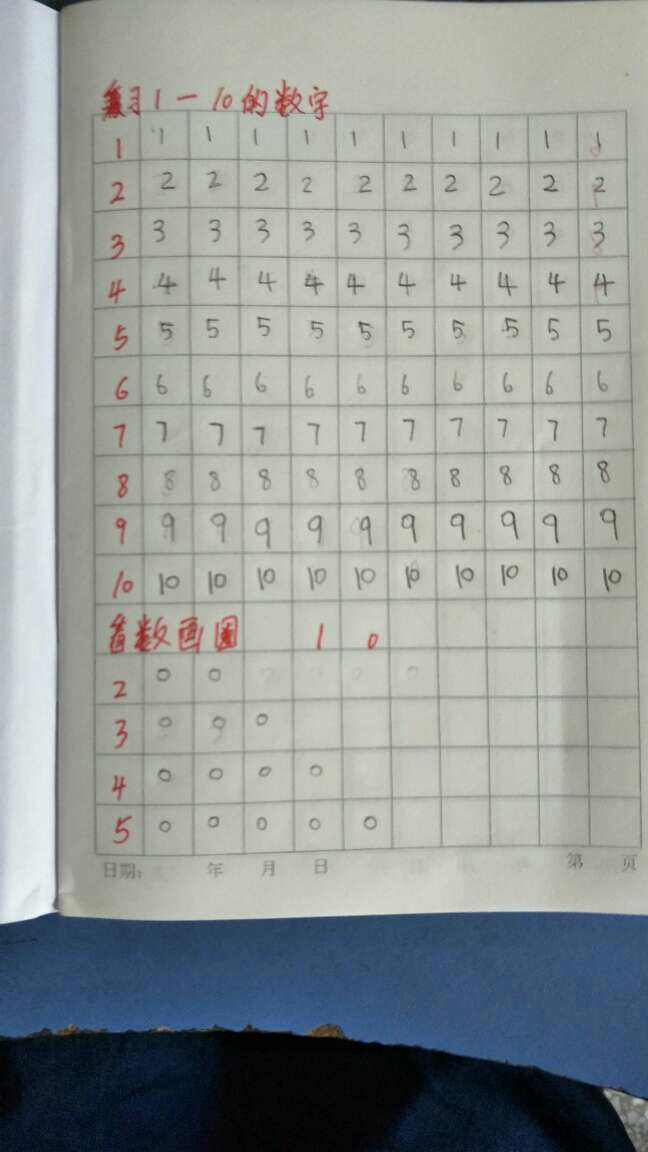 复习1一10的数字
1 1 1 1 1 1 1 1 1 1 1
2 2 2 2 2 2 2 2 2 2 2
3 3 3 3 3 3 3 3 3 3 3
4 4 4 4 4 4 4 4 4 4 4
5 5 5 5 5 5 5 5 5 5 5
6 6 6 6 6 6 6 6 6 6 6
7 7 7 7 7 7 7 7 7 7 7
8 8 8 8 8 8 8 8 8 8 8
9 9 9 9 9 9 9 9 9 9 9
10 10 10 10 10 10 10 10 10 10 10
看数画圆 1 0
2 0 0
3 0 0 0
4 0 0 0 0
5 0 0 0 0 0
日期: 年 月 日 第 页